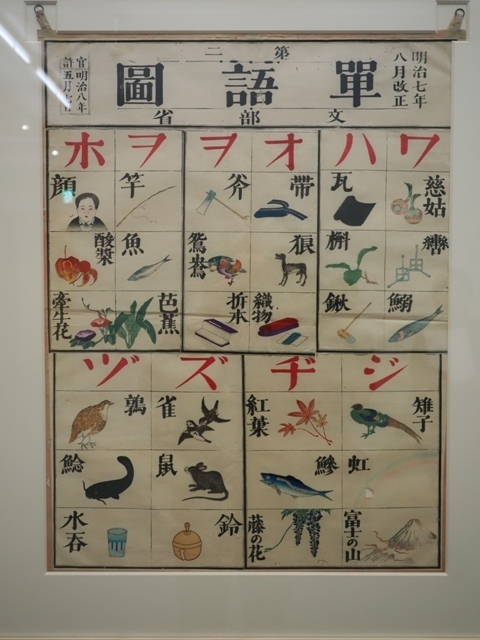 第二
單語圖
文部省
明治七年
八月改正
明治八年
ワ
慈姑
轡
鰯
ハ
瓦
槲
鍬
オ
帯
狼
織物
ヲ
斧
鴛鴦
折本
ヲ
竿
魚
芭蕉
ホ
顔
酸漿
牽牛花
ジ
雉子
虹
富士の山
ヂ
紅葉
鰺
藤の花
ズ
雀
鼠
鈴
ヅ
鶉
鯰
水呑